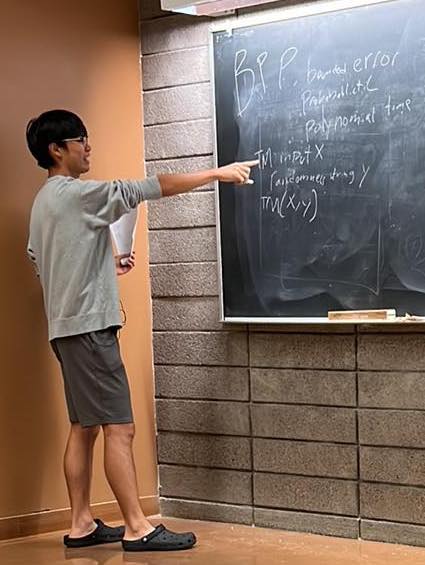 BPP, bounded error
Probabilistic
polynomial time
TM input X
randomness string y
TM(X,y)